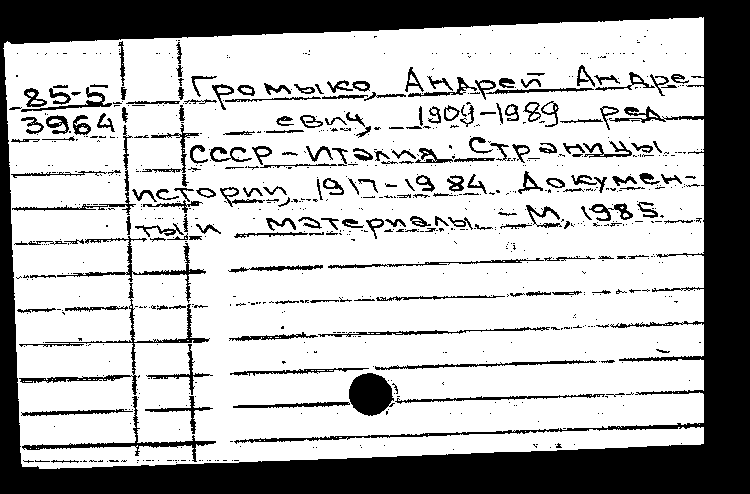 85-5
3964
Громыко, Андрей Андре-
евич, 1909-1989 ред
СССР - Италия: Страницы
истории, 1917-1984. Докумен-
ты и материалы. - М, 1985.